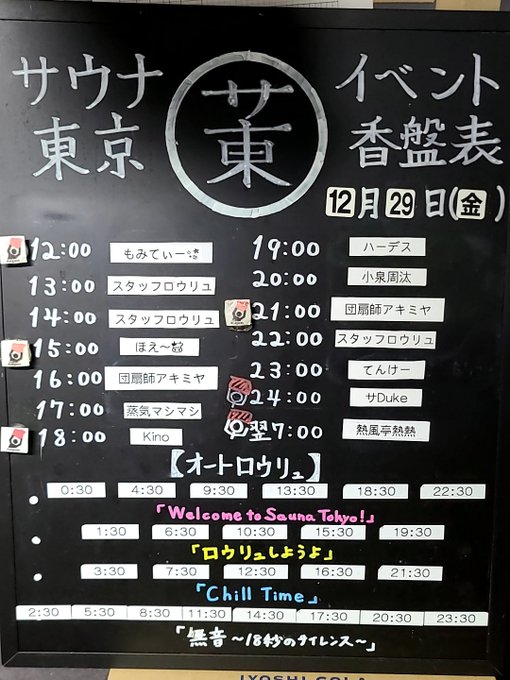 サウナ 東京
サ東
イベント 香盤表
12月29日(金)
12:00 もみてぃー
13:00 スタッフロウリュ
14:00 スタッフロウリュ
15:00 ほえ〜
16:00 団扇師アキミヤ
17:00 蒸気マシマシ
18:00 Kino
19:00 ハーデス
20:00 小泉周汰
21:00 団扇師アキミヤ
22:00 スタッフロウリュ
23:00 てんけー
24:00 サDuke
翌7:00 熱風亭熱熱
【オートロウリュ】
0:30 4:30 9:30 13:30 18:30 22:30
「Welcome to Sauna Tokyo!」
1:30 6:30 10:30 15:30 19:30
「ロウリュしようよ」
3:30 7:30 12:30 16:30 21:30
「Chill Time」
2:30 5:30 8:30 11:30 14:30 17:30 20:30 23:30
「無音〜18秒のサイレンス〜」
IYOSHI COLA